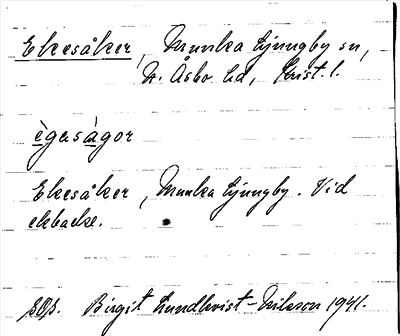 Ekesåker, Munka Ljungby sn,
N. Åsbo hd, Krist. l.
ègəsàgor
Ekesåker, Munka Ljungby. Vid
ekbacke.
Birgit Lundkvist-Nilsson 1941.